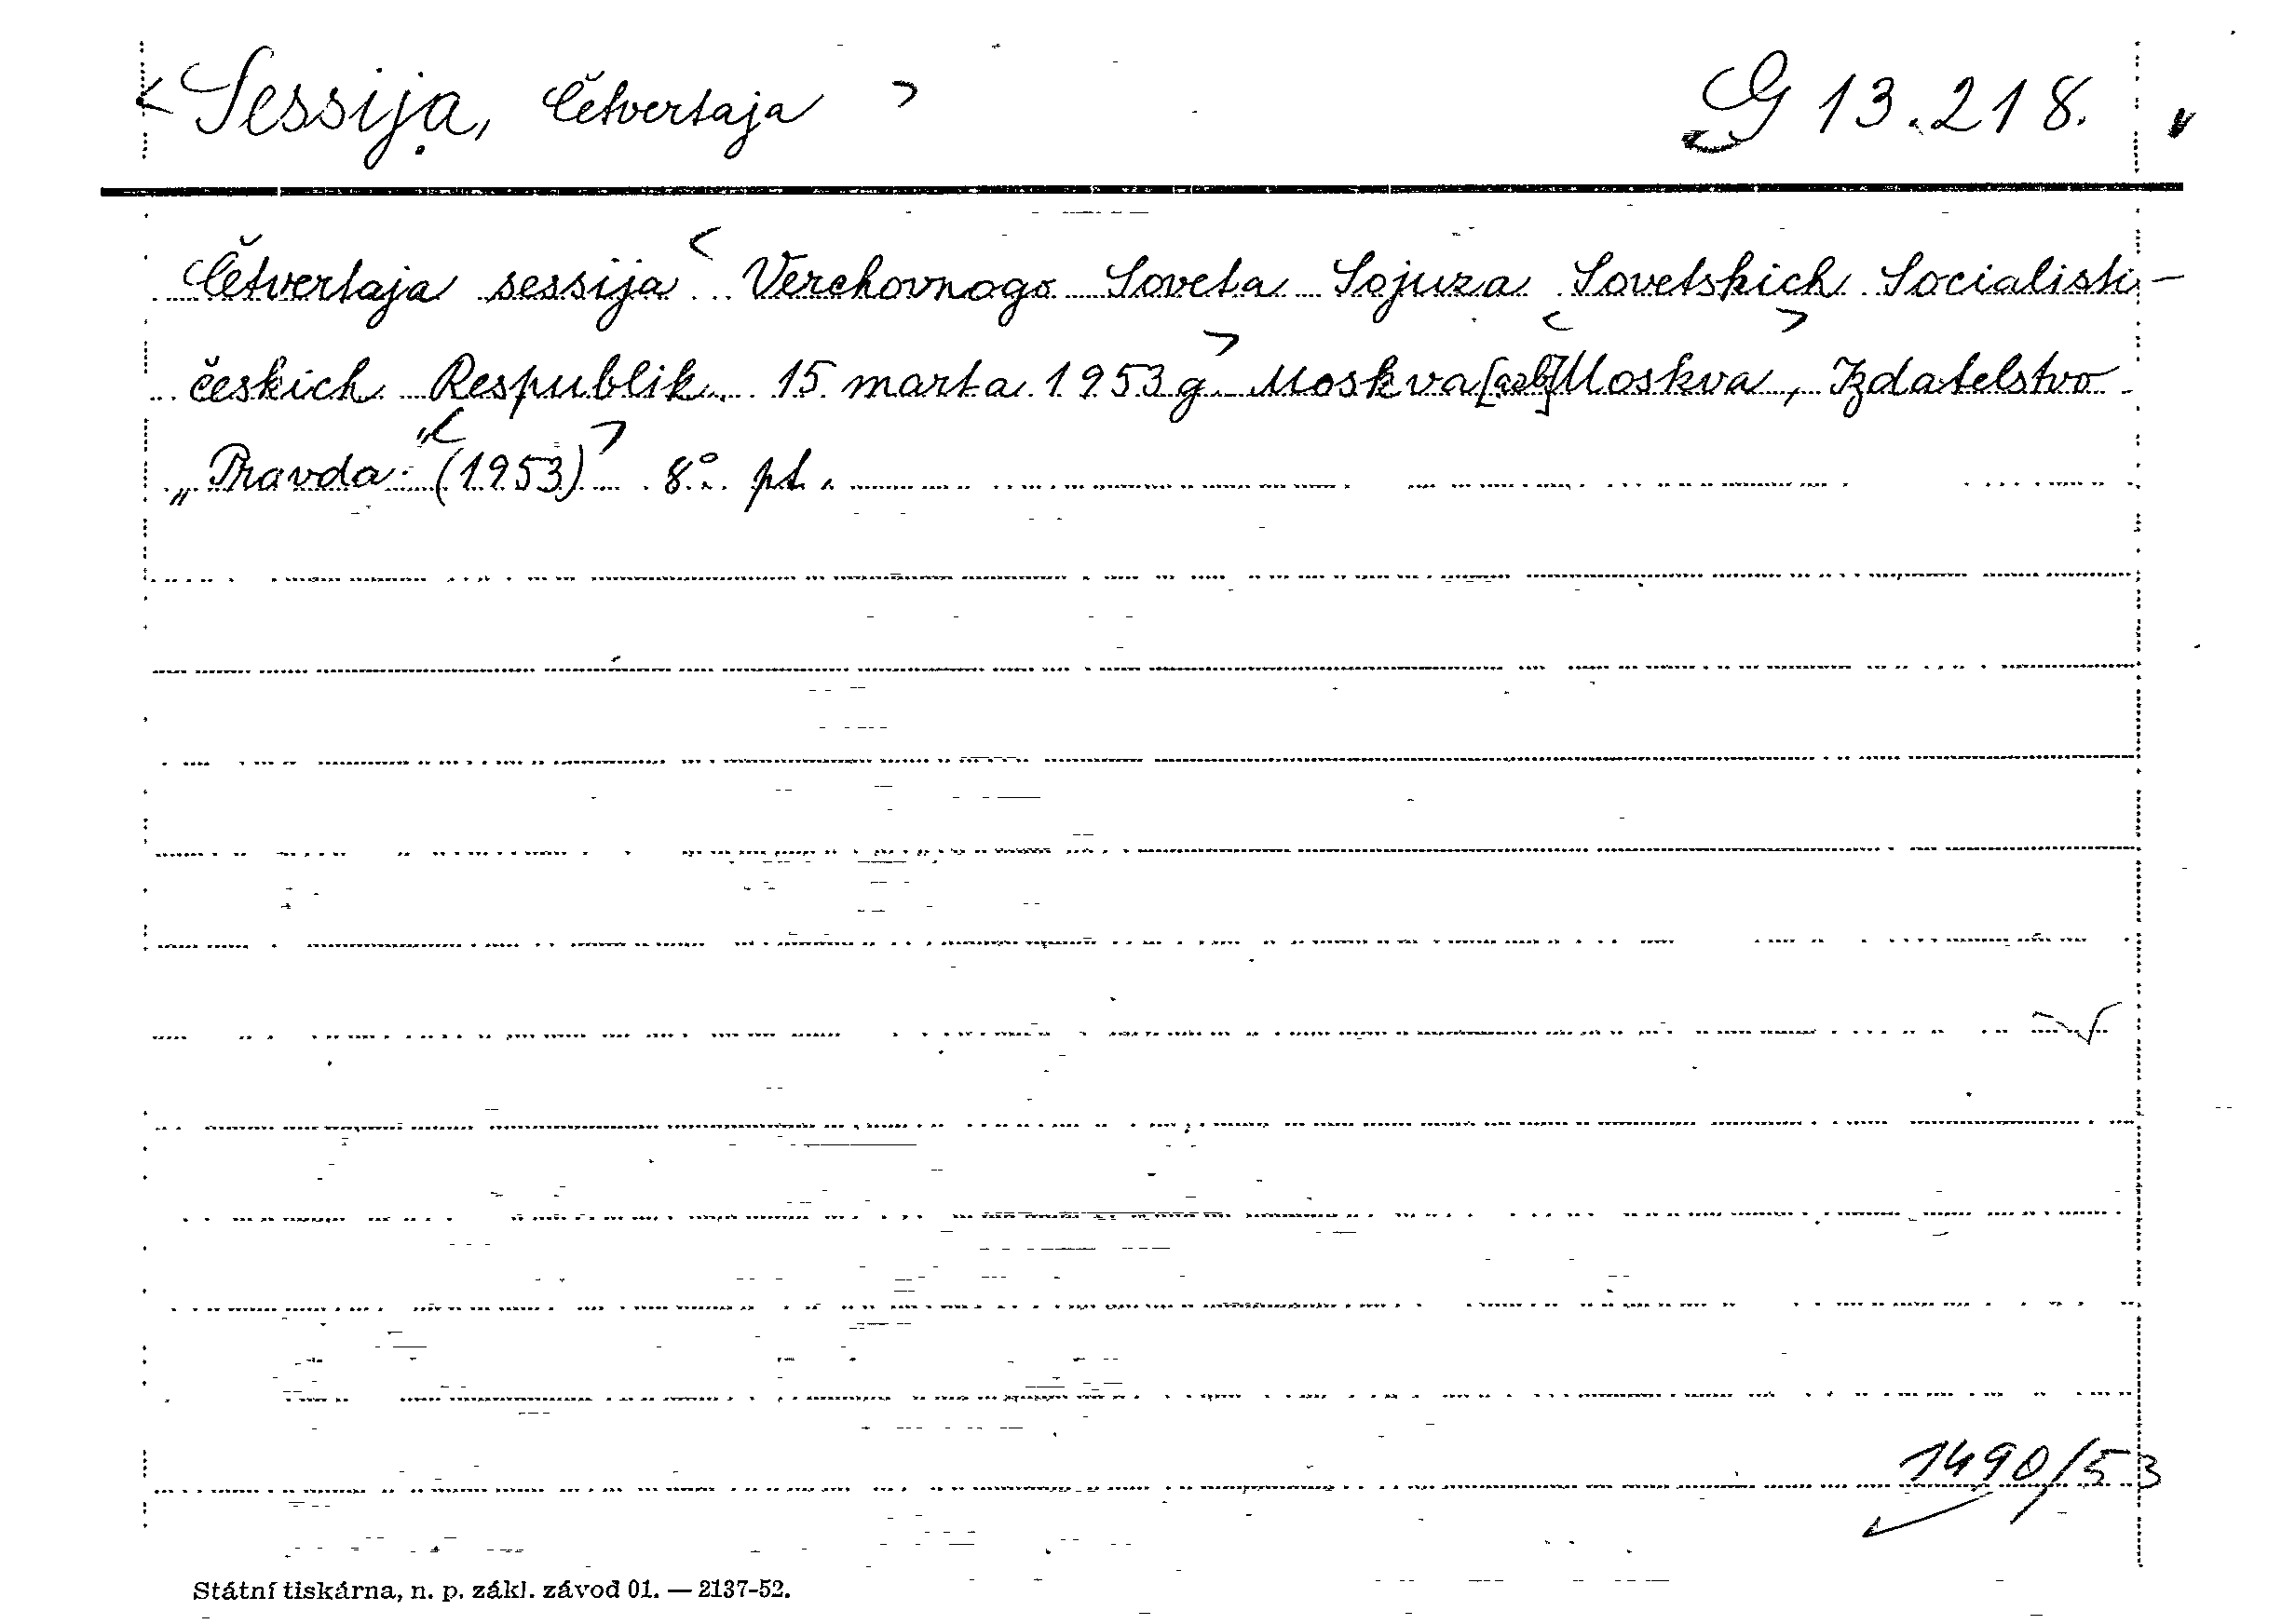 <Sessija, Četvertaja> G 13.218.
Četvertaja sessija < Verchovnogo Soveta Sojuza Sovetskich Socialisti-
českich Respublik. 15 marta 1953 g.> Moskva <Moskva>, Izdatelstvo
„Pravda“ <(1953)> 8°. pt.
1490/53
Státní tiskárna, n. p. zákl. závod 01. — 2137-52.